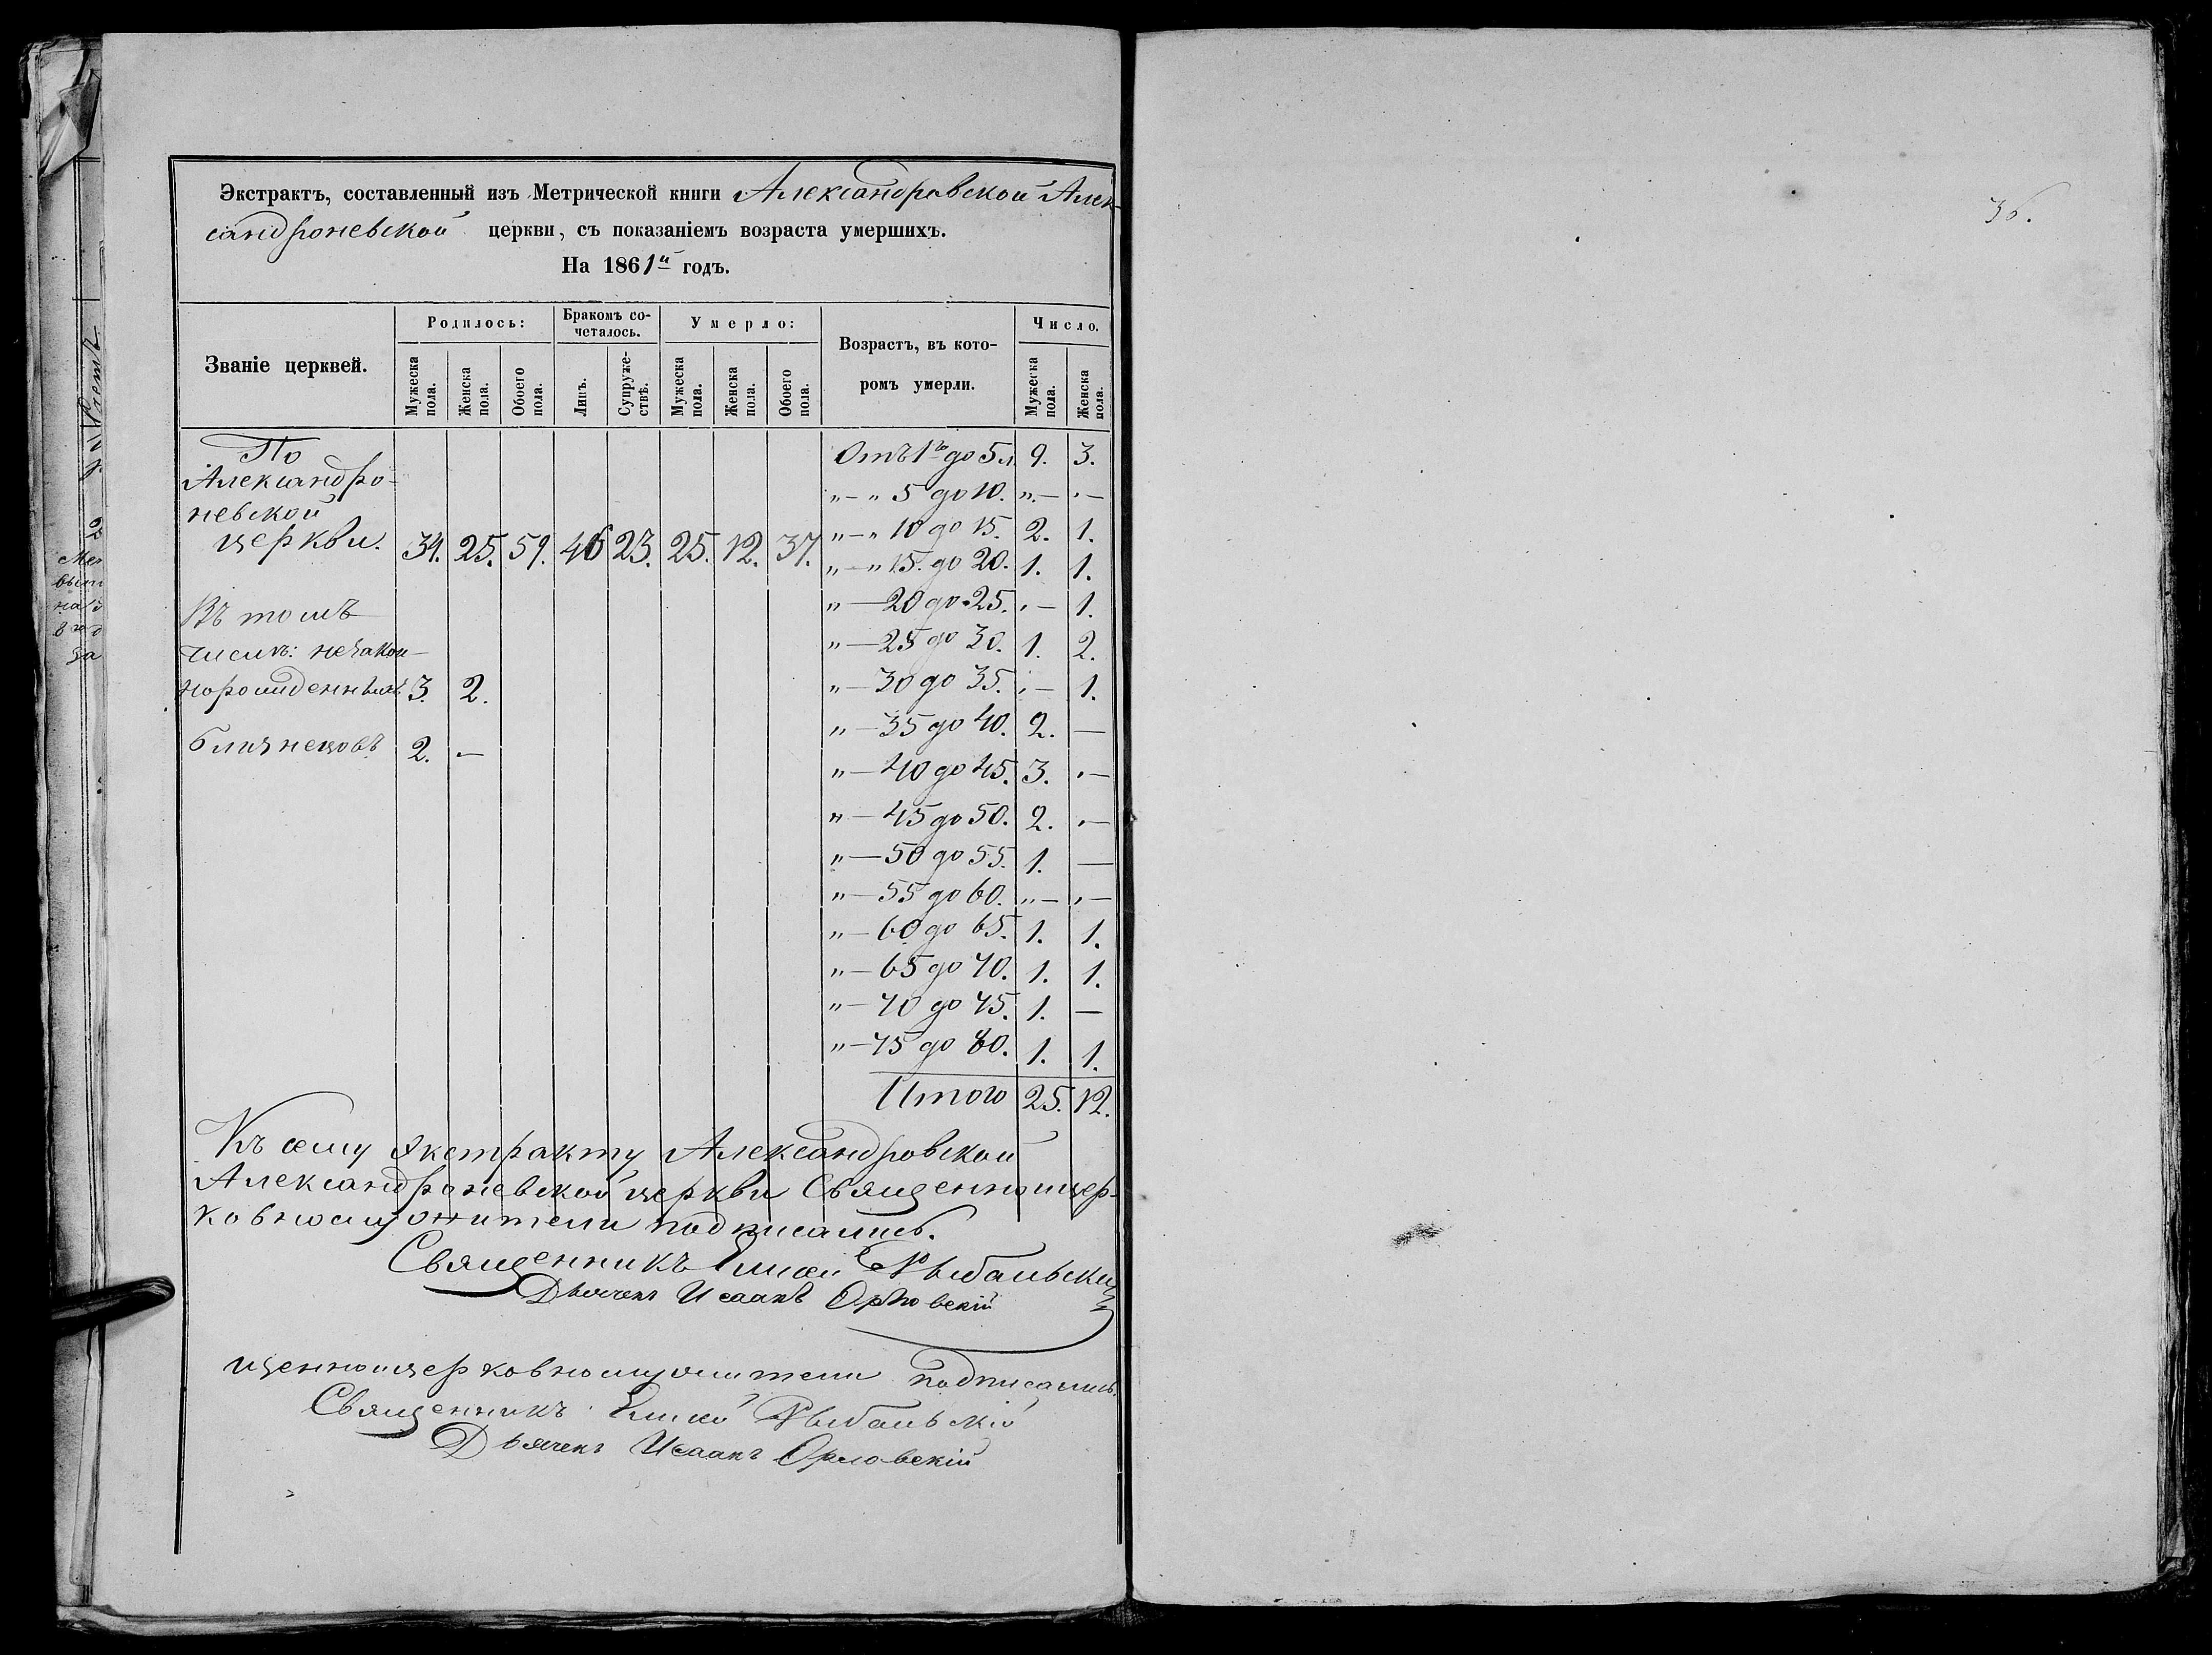 Экстрактъ, составленный изъ Метрической книги Александровской Алек-
сандроневской церкви, съ показаніемъ возраста умершихъ.
На 1861й годъ.
Званіе церквей. Родилось: Бракомъ со-четалось. Умерло: Возрастъ, въ кото-ромъ умерли. Число.
Мужеска пола. Женска пола. Обоего пола. Лицъ. Супруже-ствъ. Мужеска пола. Женска пола. Обоего пола. Мужеска пола. Женска пола.
По
Александро-
невской
церкви. 34. 25. 59. 46 23. 25. 12. 37.
Въ томъ
числѣ: незакон-
норожденныхъ 3. 2.
близнецовъ 2. —
Отъ 1го до 5 л. 9. 3.
„ — „ 5 до 10. „ — „ —
„ — „ 10 до 15. 2. 1.
„ — „ 15. до 20. 1. 1.
„ — 20 до 25. „ — 1.
„ — 25 до 30. 1. 2.
„ — 30 до 35. „ — 1.
„ — 35 до 40. 2. —
„ — 40 до 45. 3. „ —
„ — 45 до 50. 2. „ —
„ — 50 до 55. 1. —
„ — 55 до 60. „ — „ —
„ — 60 до 65. 1. 1.
„ — 65 до 70. 1. 1.
„ — 70 до 75. 1. —
„ — 75 до 80. 1. 1.
Итого 25. 12.
Къ сему экстракту Александровской
Александроневской церкви Священноцер-
ковнослужители подписались.
Священникъ Рыбальскій
Дьячекъ Исаакъ Орловскій
щенноцерковнослужители подписались.
Священникъ Рыбальскій
Дьячекъ Исаакъ Орловскій
36.